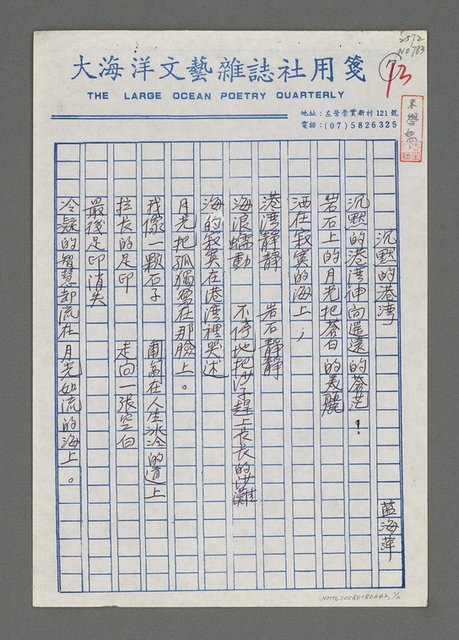 2572
No 783
73
大海洋文藝雜誌社用箋
THE LARGE OCEAN POETRY QUARTERLY
地址：左營崇實新村121號
電話：(07)5826325
沉默的港灣 藍海萍
沉默的港灣伸向遙遠的蒼茫！
岩石上的月光把蒼白的美麗
洒在寂寞的海上；
港灣靜靜 岩石靜靜
海浪蠕動 不停地把沙子趕上長長的沙灘
海的寂寞在港灣裡哭述
月光把孤獨寫在那臉上。
我像一顆石子 匍匐在人生冰冷的道上
拉長的足印 走向一張空白
最後足印消失
冷凝的智慧却流在月光如流的海上。